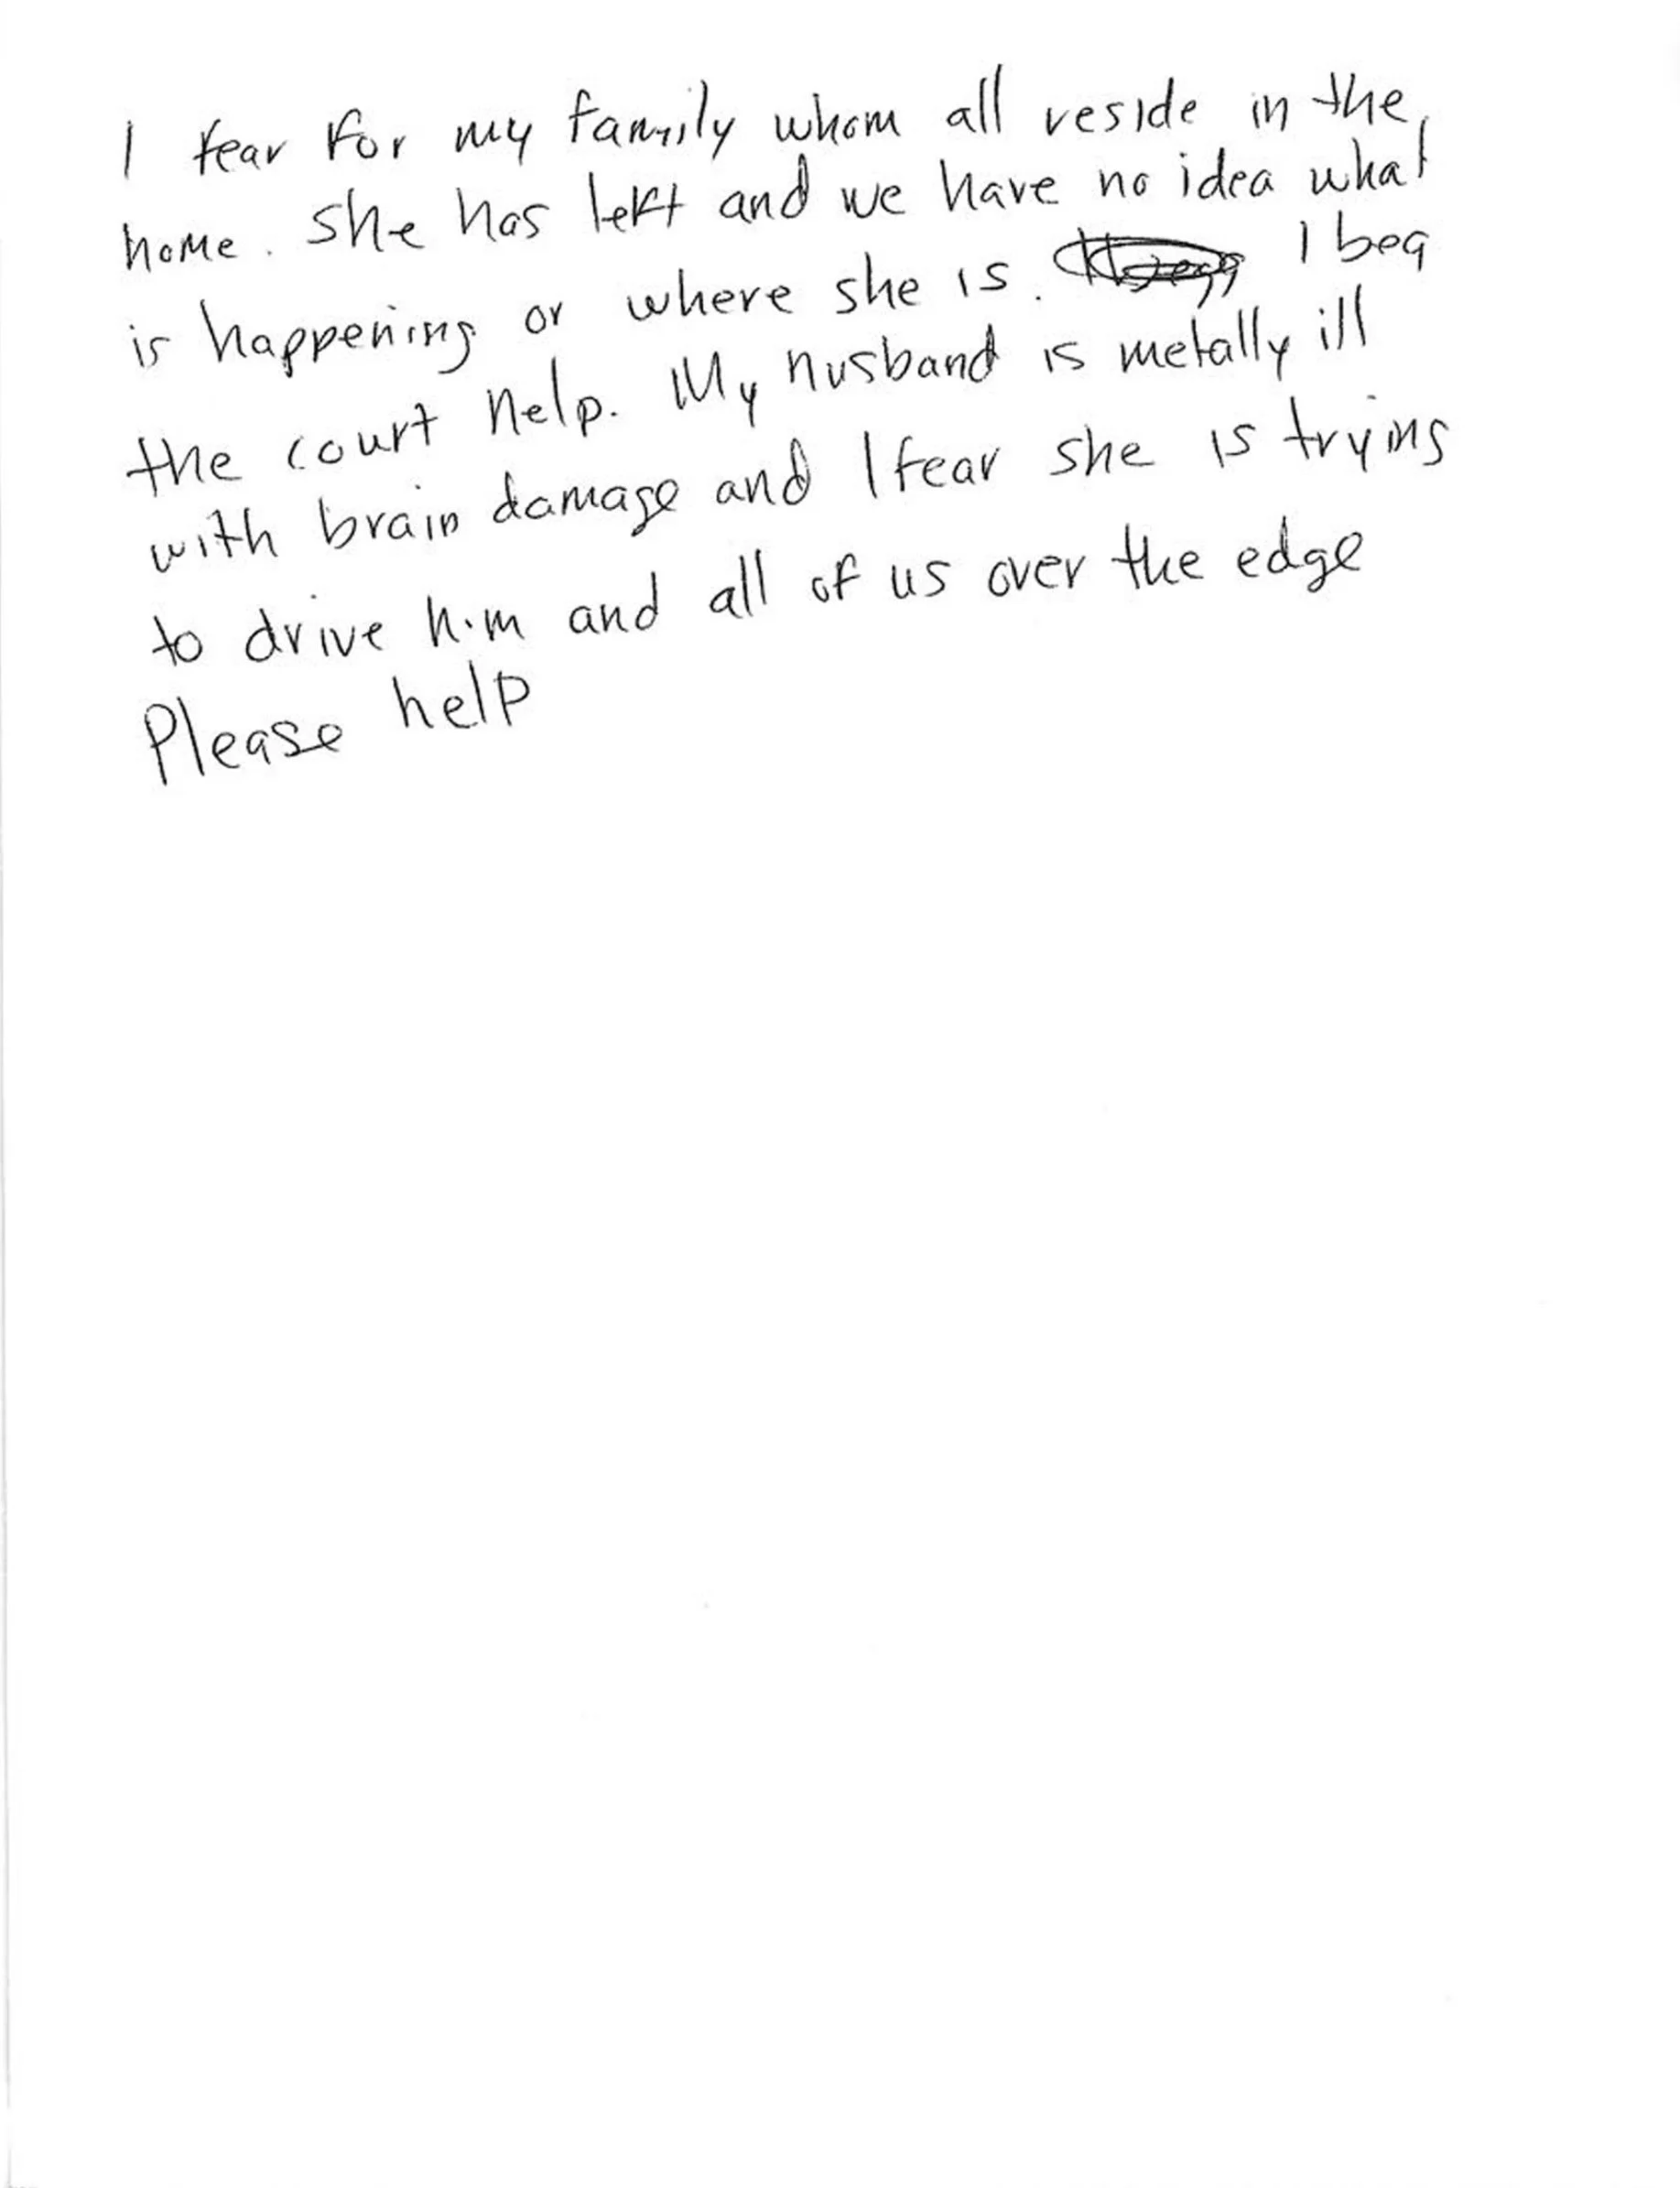 I fear for my family whom all reside in the
home. She has left and we have no idea what
is happening or where she is. I beg
the court help. My husband is metally ill
with brain damage and I fear she is trying
to drive him and all of us over the edge
Please help